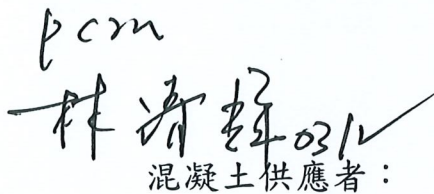 pcm
林 03/2
混凝土供應者：